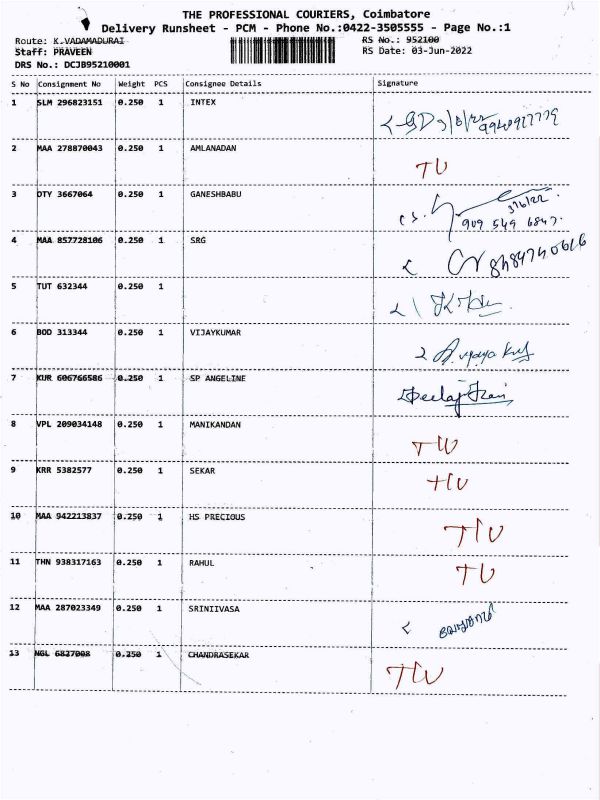 THE PROFESSIONAL COURIERS, Coimbatore
Delivery Runsheet - PCM - Phone No.:0422-3505555 - Page No.:1
Route: K.VADAMADURAI RS No.: 952100
Staff: PRAVEEN RS Date: 03-Jun-2022
DRS No.: DCJB95210001
S No Consignment No Weight PCS Consignee Details Signature
1 SLM 296823151 0.250 1 INTEX
2 MAA 278870043 0.250 1 AMLANADAN TU
3 DTY 3667064 0.250 1 GANESHBABU 3/6/22 909 549 6847.
4 MAA 857728106 0.250 1 SRG
5 TUT 632344 0.250 1
6 BOD 313344 0.250 1 VIJAYKUMAR
7 KUR 606766586 0.250 1 SP ANGELINE
8 VPL 209034148 0.250 1 MANIKANDAN TU
9 KRR 5382577 0.250 1 SEKAR TU
10 MAA 942213837 0.250 1 HS PRECIOUS TU
11 THN 938317163 0.250 1 RAHUL TU
12 MAA 287023349 0.250 1 SRINIIVASA
13 NGL 6827008 0.250 1 CHANDRASEKAR TU